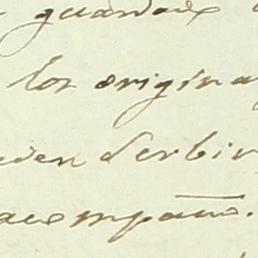 guardar
los origina
den serbir
acompaño.